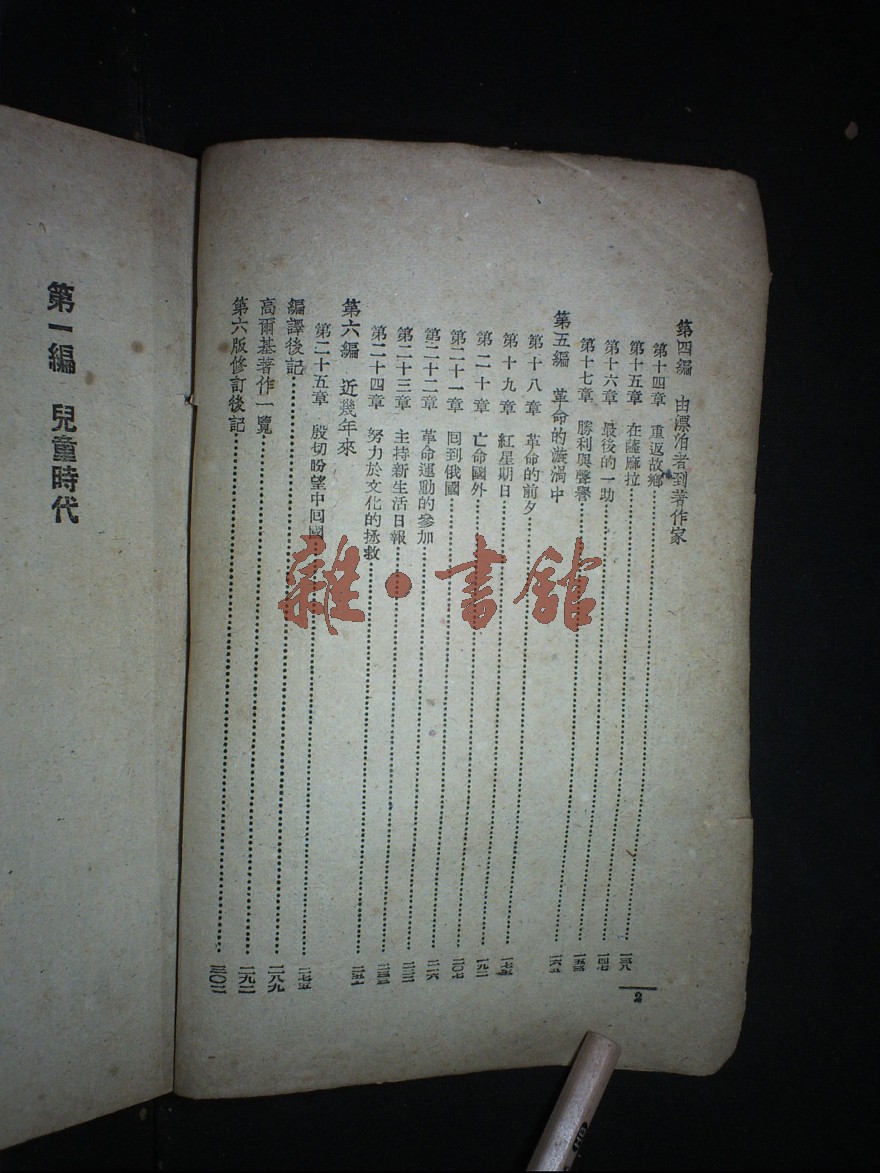 第四編　由漂泊者到著作家
第十四章　重返故鄉……一三八
第十五章　在薩麻拉……一四七
第十六章　最後的一助……一五四
第十七章　勝利與聲譽……一六五
第五編　革命的漩渦中
第十八章　革命的前夕……一七五
第十九章　紅星期日……一九二
第二十章　亡命國外……二〇七
第二十一章　回到俄國……二一六
第二十二章　革命運動的參加
第二十三章　主持新生活日報
第二十四章　努力於文化的拯救
第六編　近幾年來
第二十五章　殷切盼望中回國……二七五
編譯後記……二八九
高爾基著作一覽……二九二
第六版修訂後記……三〇二
2
第一編　兒童時代
雜·書館